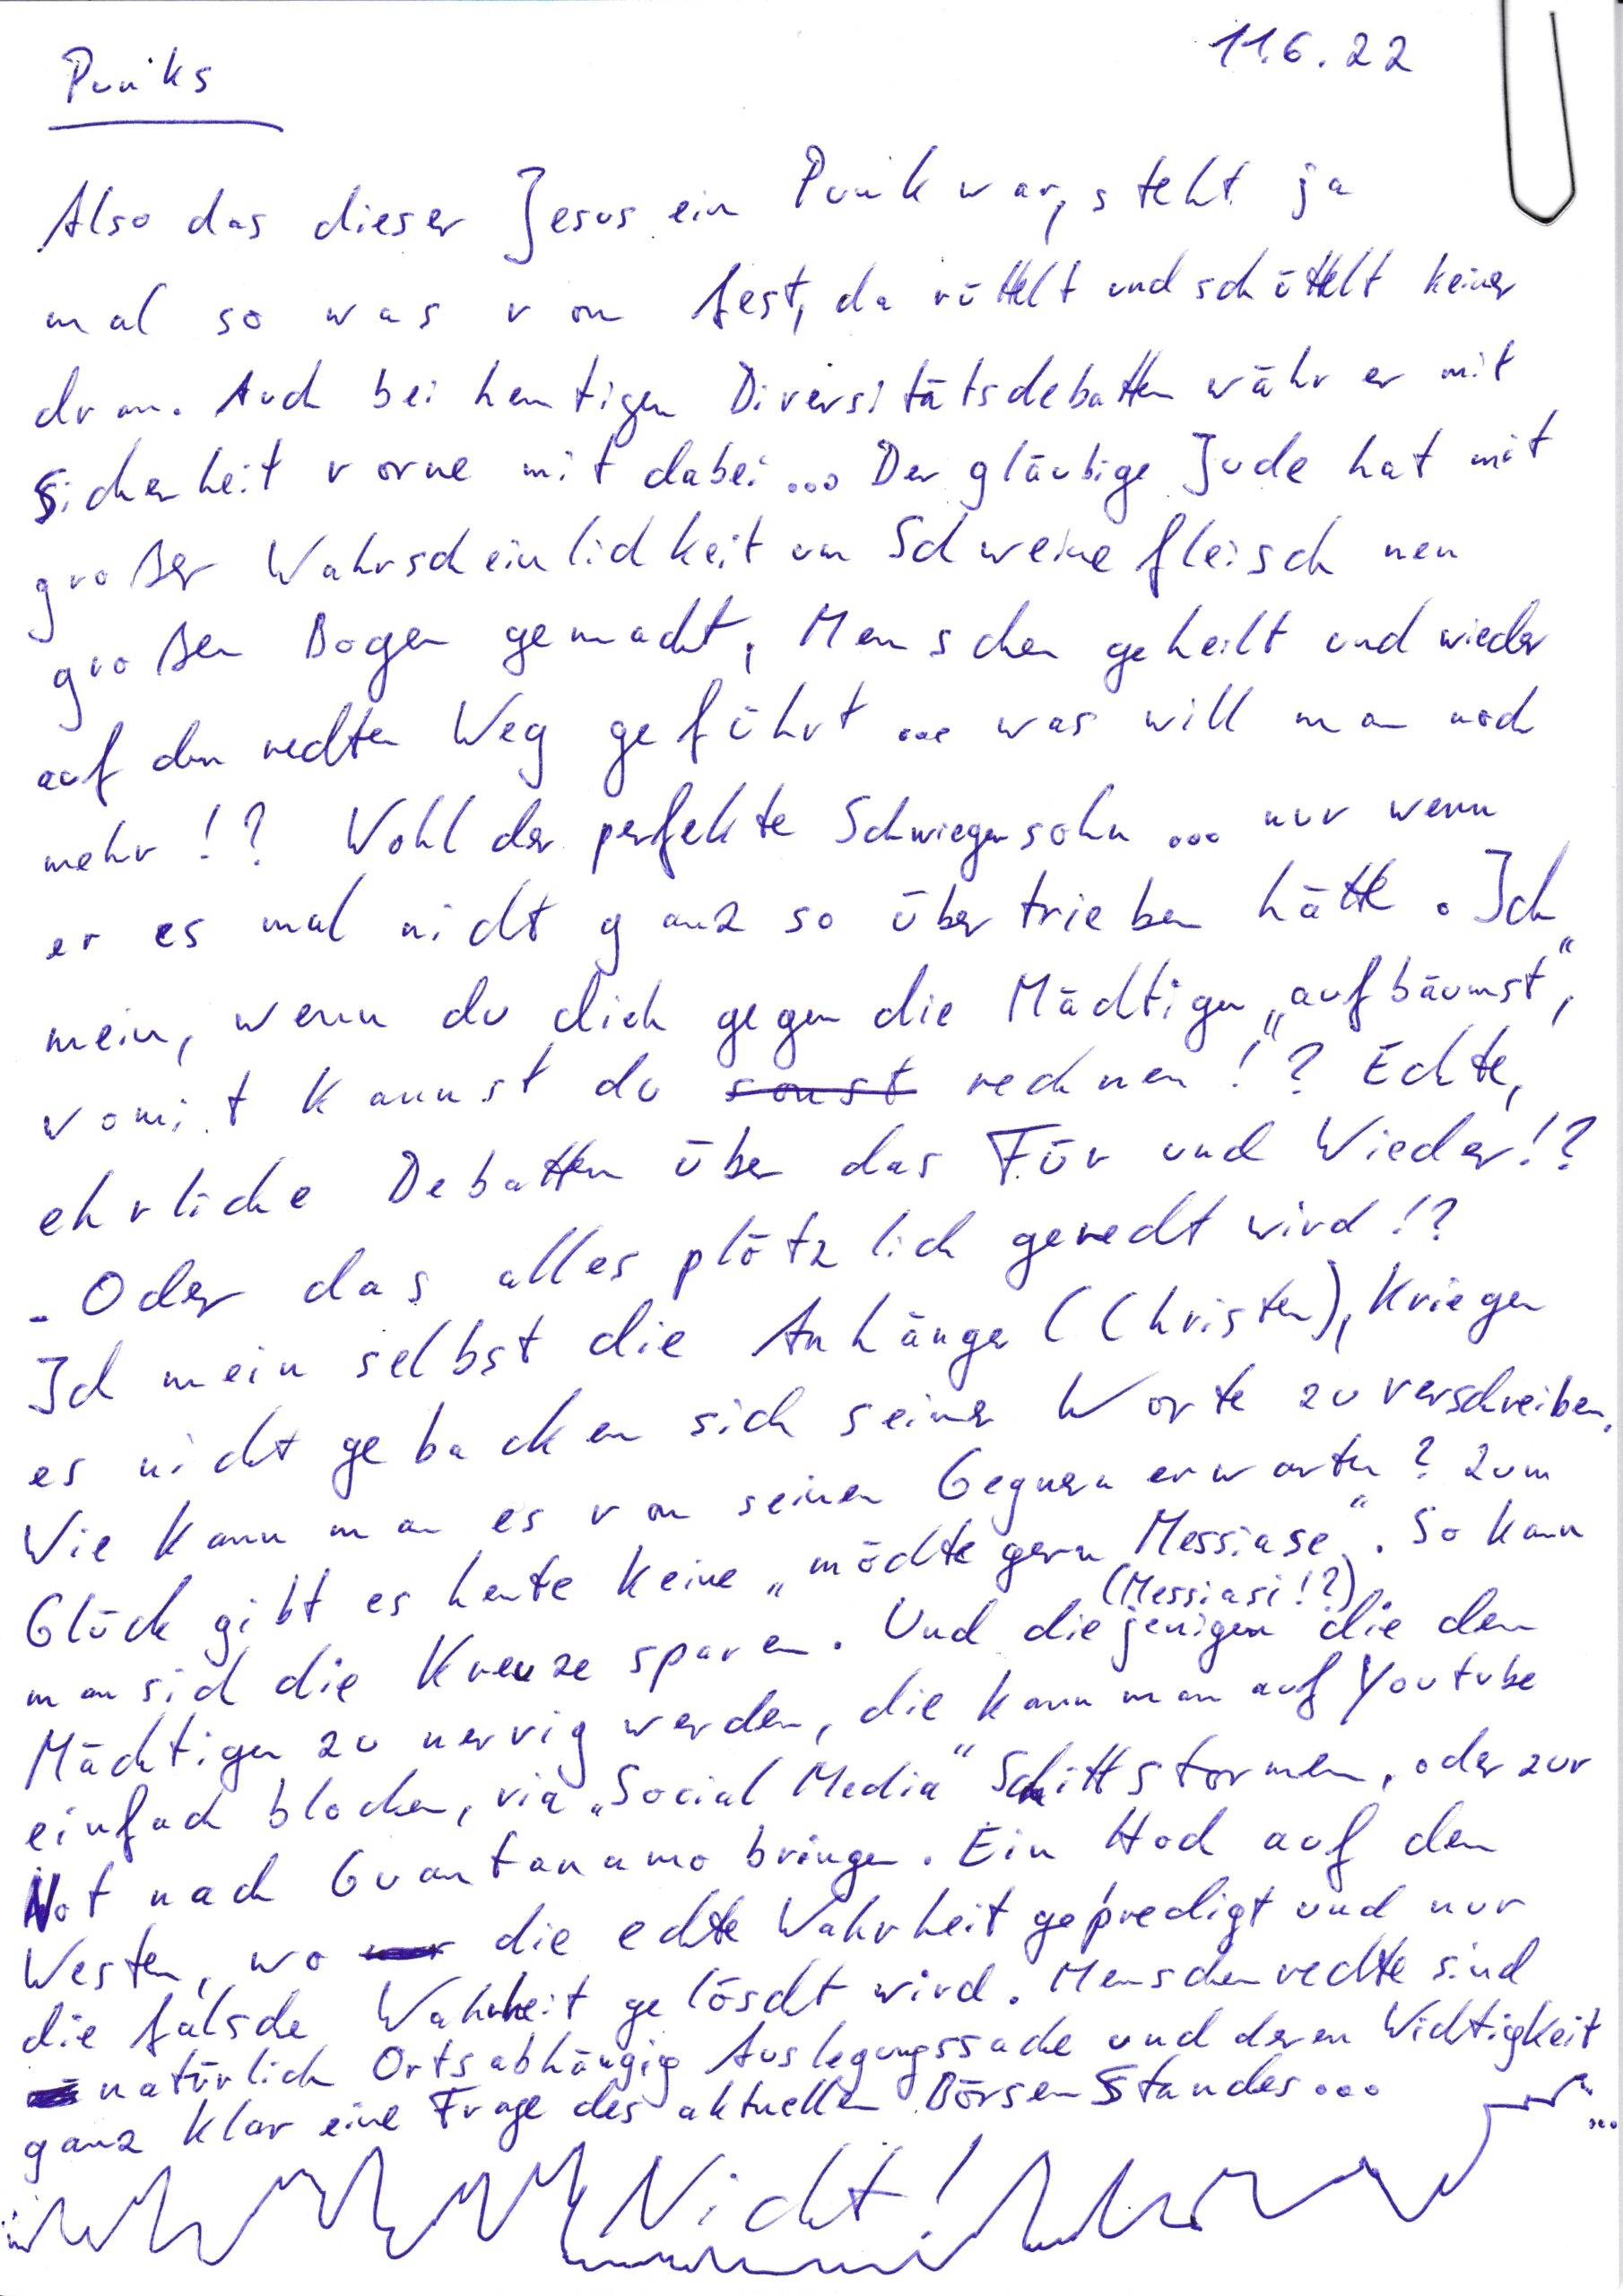 Punks
11.6.22
Also das dieser Jesus ein Punk war, steht ja
mal so was von fest, da rüttelt und schüttelt keiner
dran. Auch bei heutigen Diversitätsdebatten währ er mit
Sicherheit vorne mit dabei... Der gläubige Jude hat mit
großer Wahrscheinlichkeit um Schweinefleisch nen
großen Bogen gemacht, Menschen geheilt und wieder
auf den rechten Weg geführt ... was will man noch
mehr!? Wohl der perfekte Schwiegersohn ... nur wenn
er es mal nicht ganz so übertrieben hätte. Ich
mein, wenn du dich gegen die Mächtigen „aufbäumst“,
womit kannst du sonst rechnen!? Echte,
ehrliche Debatten über das Für und Wieder!?
- Oder das alles plötzlich gerecht wird!?
Ich mein selbst die Anhänger (Christen), kriegen
es nicht gebacken sich seiner Worte zu verschreiben.
Wie kann man es von seinen Gegnern erwarten? Zum
Glück gibt es heute keine „möchte gern Messiase“. So kann
(Messiasi!?)
man sich die Kreuze sparen. Und diejenigen die den
Mächtigen zu nervig werden, die kann man auf Youtube
einfach blocken, via „Social Media“ Schittstormen, oder zur
Not nach Guantanamo bringen. Ein Hoch auf den
Westen, wo die echte Wahrheit gepredigt und nur
die falsche Wahrheit gelöscht wird. Menschenrechte sind
natürlich Ortsabhängig Auslegungssache und deren Wichtigkeit
ganz klar eine Frage des aktuellen Börsenstandes...
Nicht!